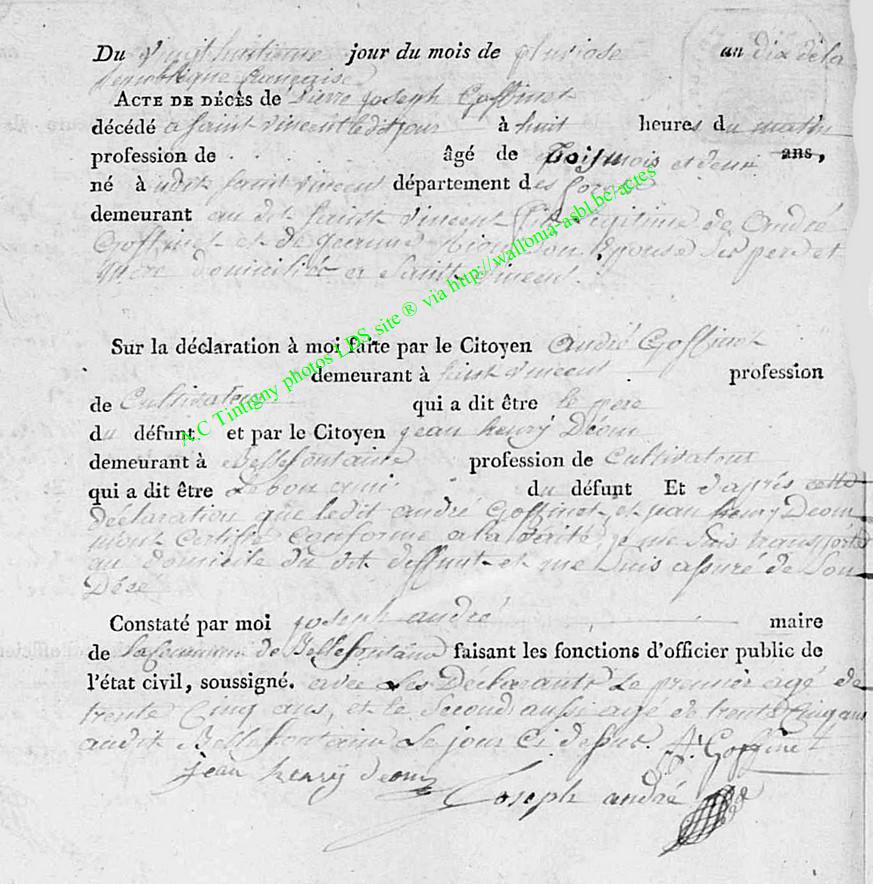 Du vingt huitieme jour du mois de pluviose an dix de la
république française
ACTE DE DÉCÈS de Pierre joseph Goffinet
décédé a saint vincent ledit jour à huit heures du matin
profession de âgé de mois et deux ans,
né à udit saint vincent département des forets
demeurant au dit saint vincent fils légitime de andré
Goffinet et de jeanne son epouse ses pere et
mere domiciliés a saint vincent
Sur la déclaration à moi faite par le Citoyen andré Goffinet
demeurant à saint vincent profession
de Cultivateur qui a dit être le pere
du défunt et par le Citoyen jean henry Deom
demeurant à Bellefontaine profession de Cultivateur
qui a dit être le bon ami du défunt Et d'après cette
déclaration que ledit andré Goffinet et jean henry Deom
mont certifié conforme a la vérité, je me suis transporté
au domicile du dit deffunt et me suis assuré de son
Décé
Constaté par moi joseph andré maire
de la Commune de Bellefontaine faisant les fonctions d'officier public de
l'état civil, soussigné. avec les Déclarants le premier agé de
trente Cinq ans, et le second aussi agé de trente Cinq ans
audit Bellefontaine le jour Ci dessus. A. Goffinet
jean henry deom
Joseph andré
A.C Tintigny photos LDS site ® via http://wallonia-asbl.be/actes